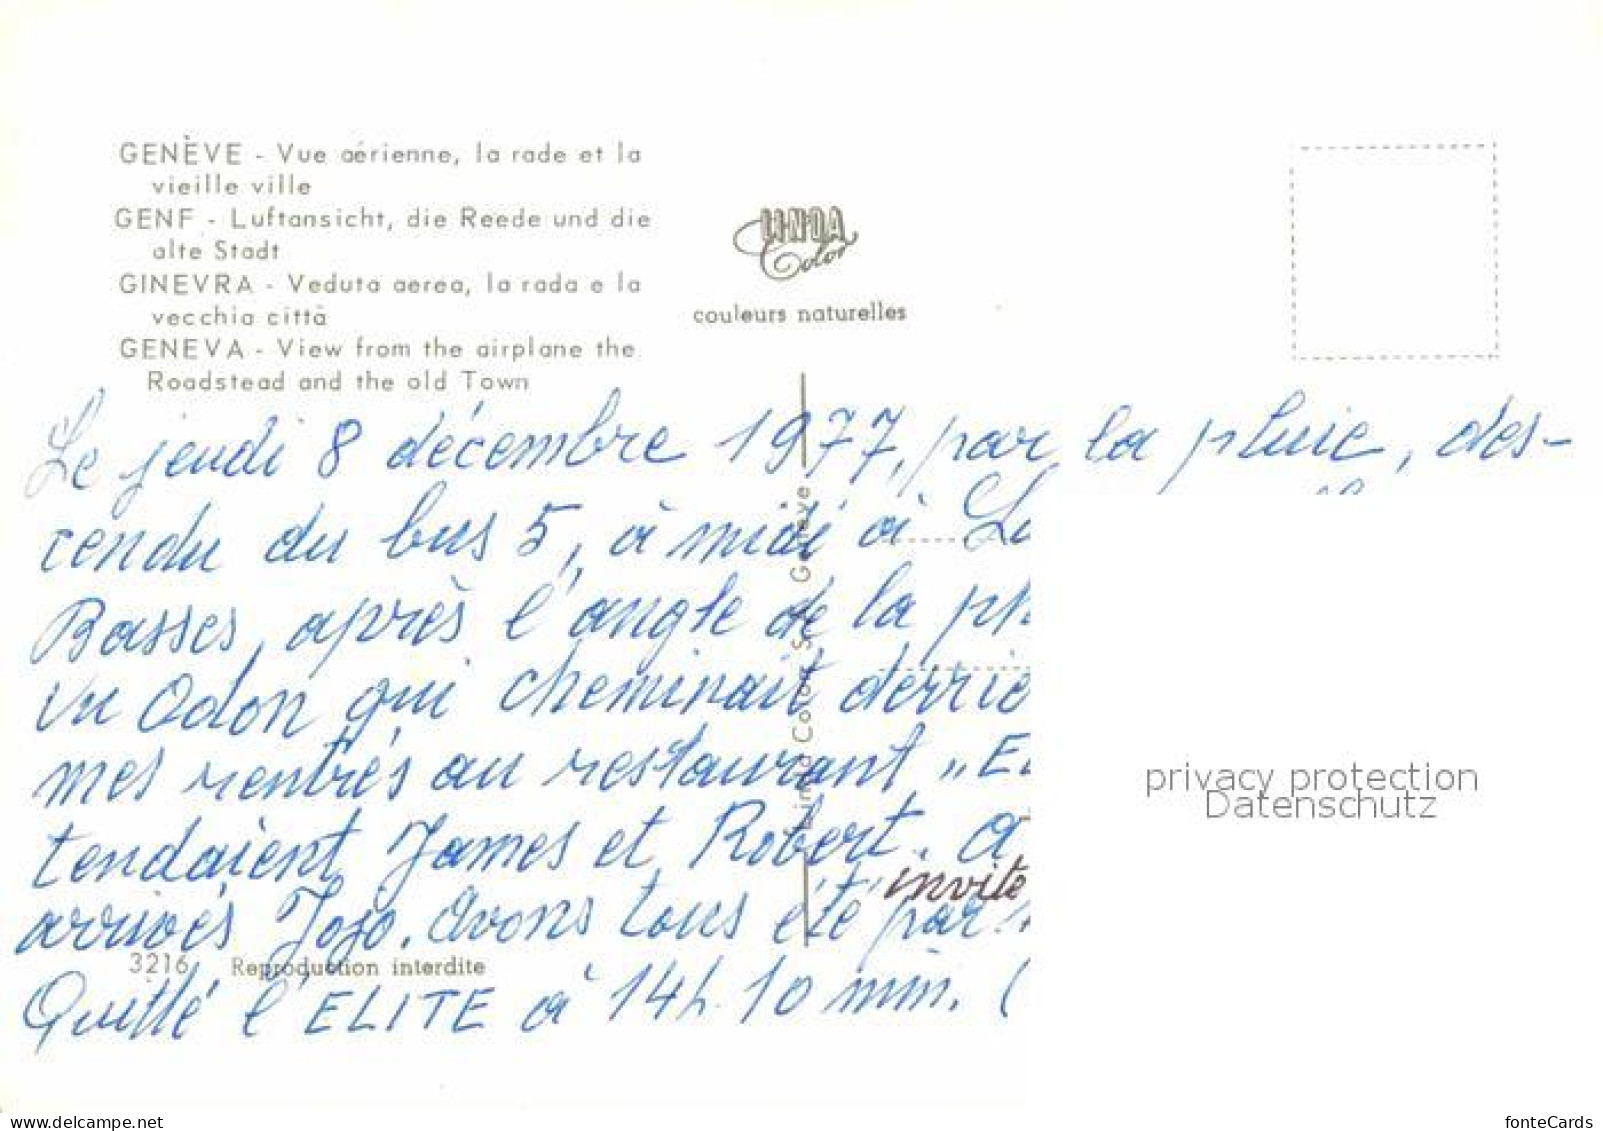 GENÈVE - Vue aérienne, la rade et la
vieille ville
GENF - Luftansicht, die Reede und die
alte Stadt
GINEVRA - Veduta aerea, la rada e la
vecchia città
GENEVA - View from the airplane the
Roadstead and the old Town
LINDA
Color
couleurs naturelles
Le jeudi 8 décembre 1977, par la pluie, des-
cendu du bus 5, à midi à
Basses, après l'angle de la
vu Odon qui cheminait
mes rentrés au restaurant
tendaient James et Robert.
invité
arrivés Jojo. Avons tous été par
3216 Reproduction interdite
Quitté l'ELITE à 14h. 10 min. (
privacy protection
Datenschutz
www.delcampe.net
fonteCards